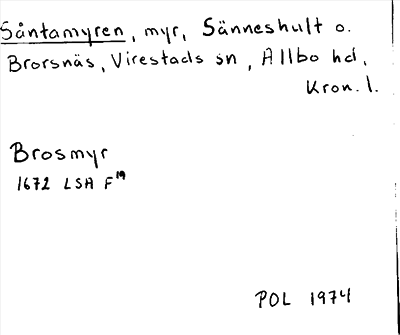 Såntamyren, myr, Sänneshult o.
Brorsnäs, Virestads sn, Allbo hd,
Kron. l.
Brosmyr
1672 LSA F¹⁹
POL 1974